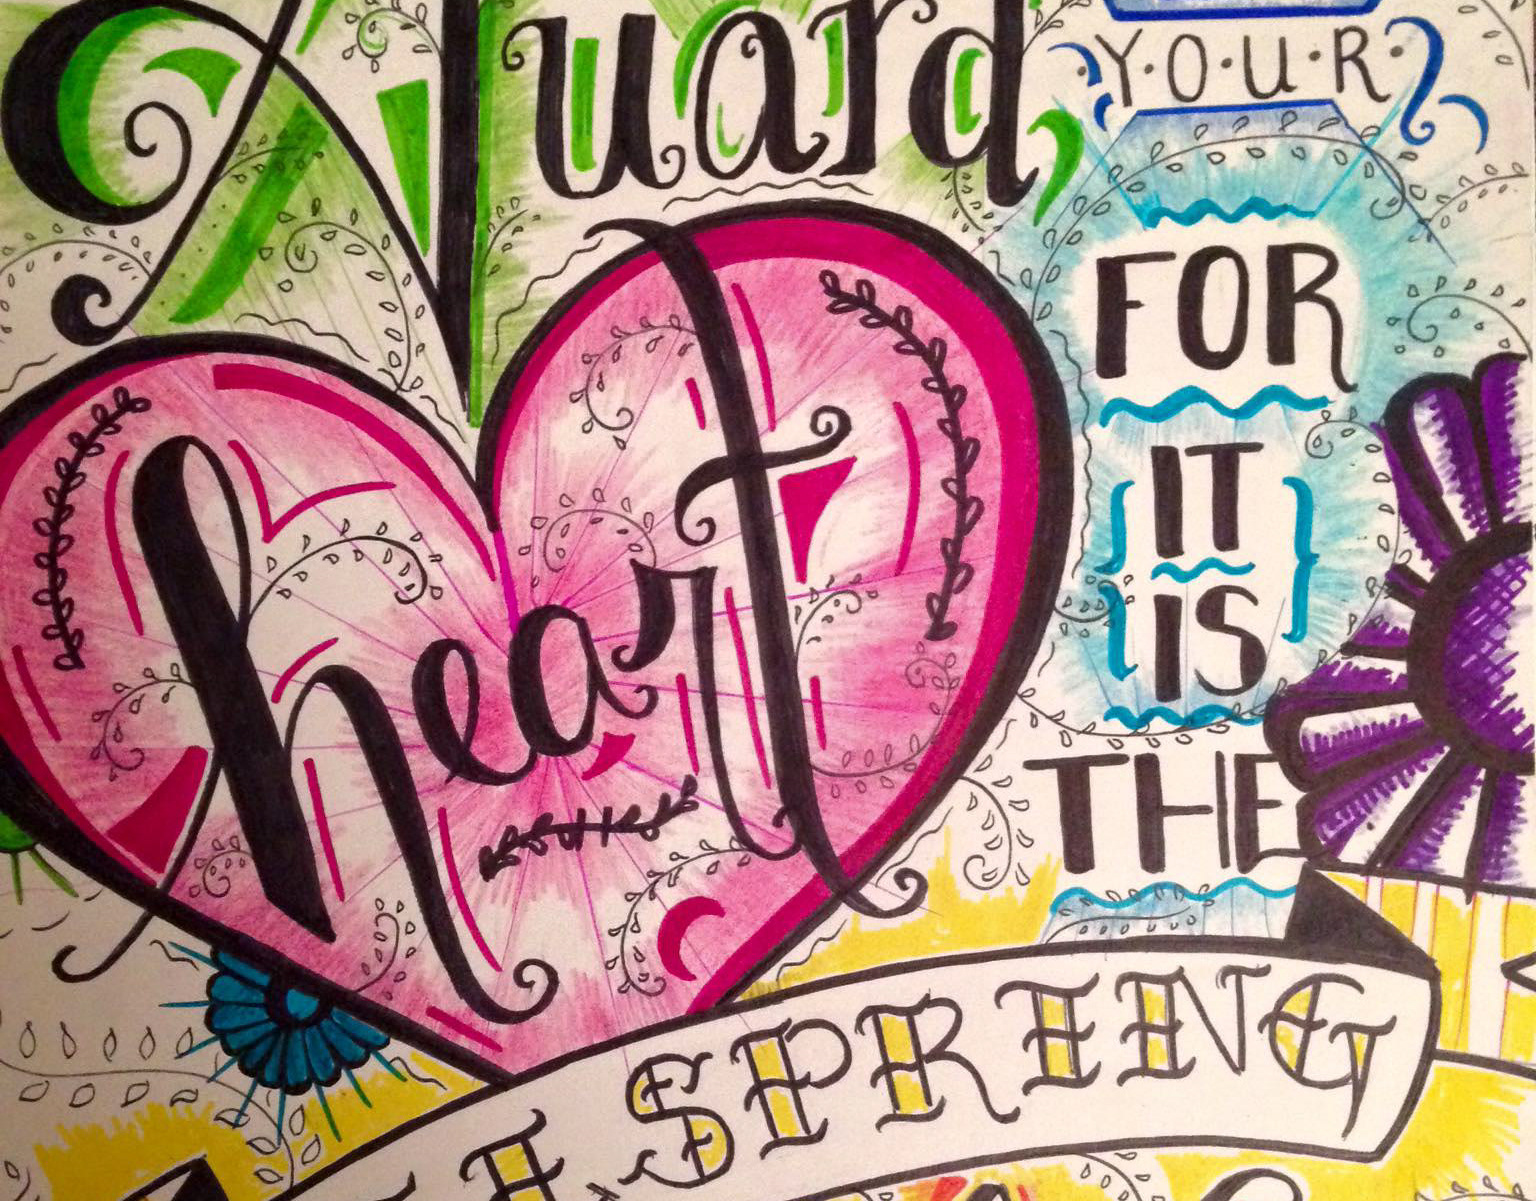 Guard,
YOUR
heart
FOR
IT
IS
THE
SPRING